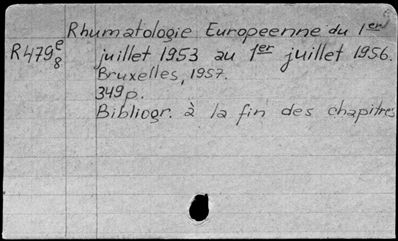 Rhumatologie Europeenne du 1er
R479e8 juillet 1953 au 1er juillet 1956.
Bruxelles, 1957.
349p.
Bibliogr. à la fin des chapitres